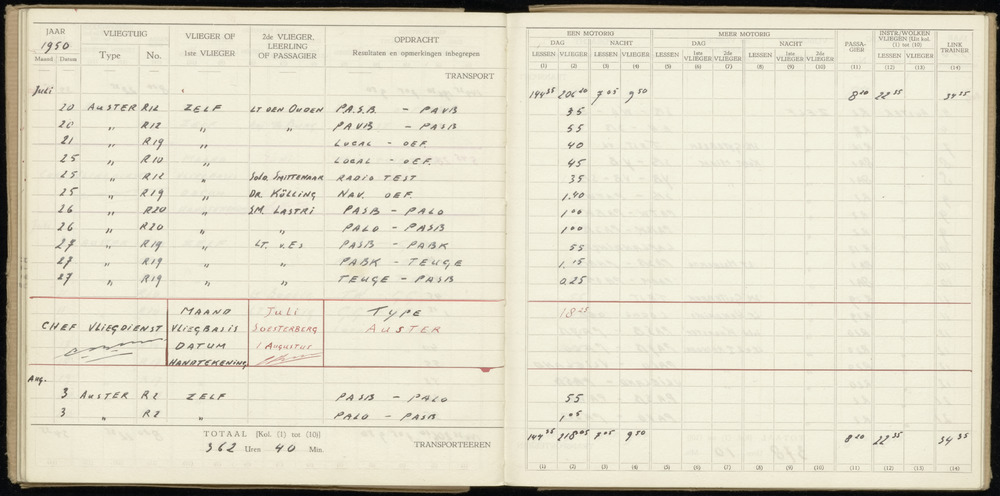 JAAR
1950
VLIEGTUIG
VLIEGER OF
1ste VLIEGER
2de VLIEGER,
LEERLING
OF PASSAGIER
OPDRACHT
Resultaten en opmerkingen inbegrepen
Maand Datum Type No.
TRANSPORT
Juli
20 AUSTER R12 ZELF LT DEN OUDEN PASB - PAVB
20 " R12 " " PAVB - PASB
21 " R19 " LOCAL - OEF.
25 " R10 " LOCAL - OEF.
25 " R12 " SOLD. SMITTENAAR RADIO TEST
25 " R19 " DR. KÖLLING NAV. OEF.
26 " R20 " SM. LASTRI PASB - PALO
26 " R20 " " PALO - PASB
27 " R19 " LT. v. ES PASB - PABK
27 " R19 " " PABK - TEUGE
27 " R19 " " TEUGE - PASB
MAAND JULI TYPE
CHEF VLIEGDIENST VLIEGBASIS SOESTERBERG AUSTER
DATUM 1 AUGUSTUS
HANDTEKENING
Aug.
3 AUSTER R2 ZELF PASB - PALO
3 " R2 " PALO - PASB
TOTAAL [Kol. (1) tot (10)]
362 Uren 40 Min.
TRANSPORTEEREN
EEN MOTORIG MEER MOTORIG PASSA-
GIER INSTR./WOLKEN
VLIEGEN (Uit kol.
(1) tot (10) LINK
TRAINER
DAG NACHT DAG NACHT
LESSEN VLIEGER LESSEN VLIEGER LESSEN 1ste VLIEGER 2de VLIEGER LESSEN 1ste VLIEGER 2de VLIEGER LESSEN VLIEGER
(1) (2) (3) (4) (5) (6) (7) (8) (9) (10) (11) (12) (13) (14)
144 35 206 20 7 05 9 50 8 20 22 35 34 35
35
55
40
45
35
1.40
1 00
1 00
55
1.15
0.25
18 25
55
1 05
144 35 218 05 7 05 9 50 8 20 22 35 34 35
(1) (2) (3) (4) (5) (6) (7) (8) (9) (10) (11) (12) (13) (14)